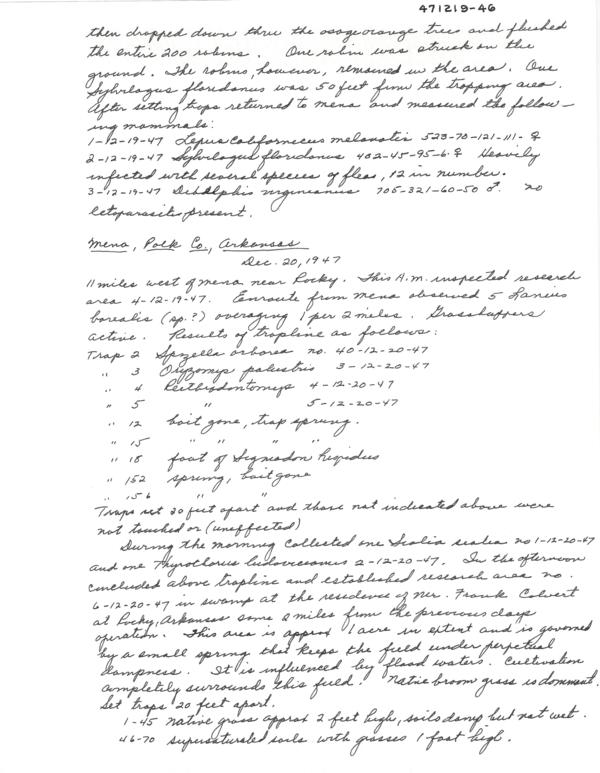 471219-46
then dropped down thru the osage orange trees and flushed
the entire 200 robins. One robin was struck on the
ground. The robins, however, remained in the area. One
Sylvilagus floridanus was 50 feet from the trapping area.
After setting traps returned to mena and measured the follow-
ing mammals:
1-12-19-47 Lepus californicus melanotis 523-70-121-111- ♀
2-12-19-47 Sylvilagus floridanus 402-45-95-6. ♀ Heavily
infected with several species of fleas, 12 in number.
3-12-19-47 Didelphis virginianus 705-321-60-50 ♂. no
ectoparasites present.
Mena, Polk Co., Arkansas
Dec. 20, 1947
11 miles west of mena near Rocky. This A.m. inspected research
area 4-12-19-47. Enroute from mena observed 5 Lanius
borealis (sp.?) averaging 1 per 2 miles. Grasshoppers
active. Results of trapline as follows:
Trap 2 Spizella arborea no. 40-12-20-47
" 3 Oryzomys palustris 3-12-20-47
" 4 Reithrodontomys 4-12-20-47
" 5 " 5-12-20-47
" 12 bait gone, trap sprung.
" 15 " " " "
" 18 foot of Sigmodon hispidus
" 152 sprung, bait gone
" 156 " "
Traps set 20 feet apart and those not indicated above were
not touched or (unaffected)
During the morning collected one Sialia sialis no 1-12-20-47
and one Thyrothorus ludovicianus 2-12-20-47. In the afternoon
concluded above trapline and established research area no.
6-12-20-47 in swamp at the residence of Mr. Frank Colvert
at Rocky, Arkansas some 2 miles from the previous days
operation. This area is approx 1 acre in extent and is governed
by a small spring that keeps the field under perpetual
dampness. It is influenced by flood waters. Cultivation
completely surrounds this field. Native broom grass is dominant.
Set traps 20 feet apart.
1-45 native grass approx 2 feet high, soils damp but not wet.
46-70 supersaturated soils with grasses 1 foot high.